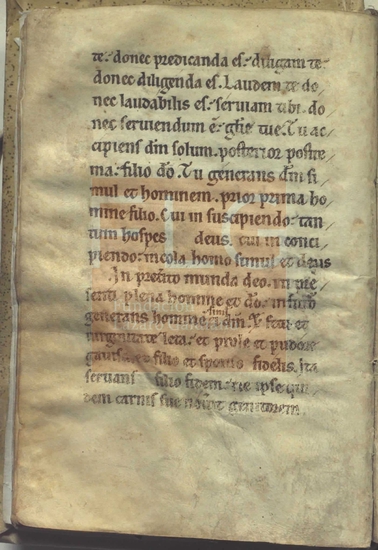 te. donec predicanda es. diligam te
donec diligenda es. Laudem te do
nec laudabilis es. serviam tibi. do
nec serviendum ē. glie tue. Tu ac
cipiens dm̄ solum. posterior postre
ma. filio dō. Tu generans dm̄ si
mul et hominem. prior prima ho
mine filio. Cui in suscipiendo. tan
tum hospes deus. cui in conci
piendo. incola homo simul et deus
In pret̄ito munda deo. in pre
senti plena homine et dō. in futr̄o
generans hominem simul et dm̄.
virginitate leta. et prole et pudore
filio et sponso fidelis. Ita
servans filio fidem. ipse
dem carnis sue genitorem